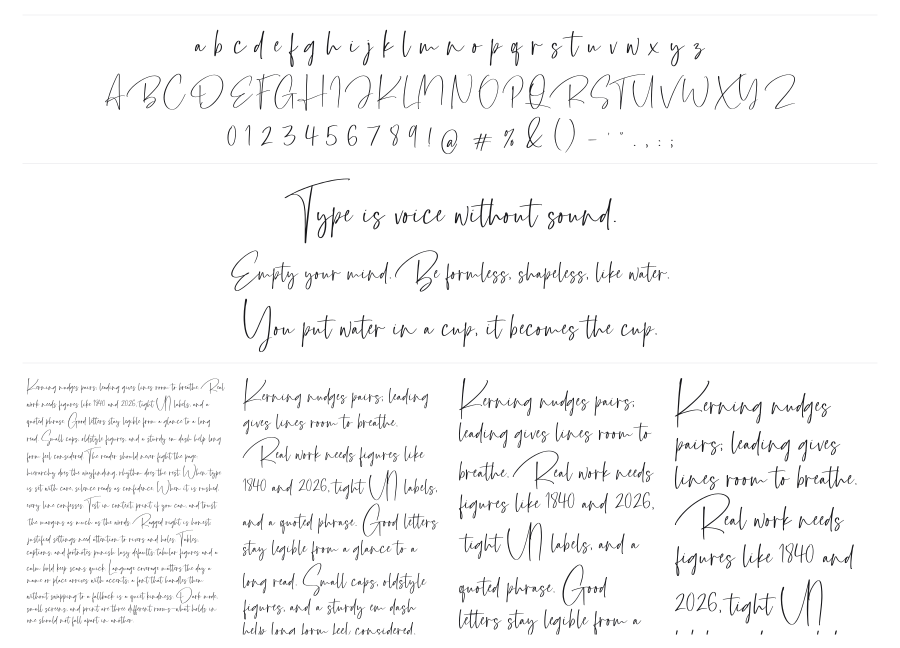 a b c d e f g h i j k l m n o p q r s t u v w x y z
A B C D E F G H I J K L M N O P Q R S T U V W X Y Z
0 1 2 3 4 5 6 7 8 9 ! @ # % & ( ) - ' " . , : ;
Type is voice without sound.
Empty your mind. Be formless, shapeless, like water.
You put water in a cup, it becomes the cup.
Kerning nudges pairs; leading gives lines room to breathe. Real
work needs figures like 1840 and 2026, tight UI labels, and a
quoted phrase. Good letters stay legible from a glance to a long
read. Small caps, oldstyle figures, and a sturdy em dash help long
form feel considered. The reader should never fight the page.
hierarchy does the wayfinding, rhythm does the rest. When type
is set with care, silence reads as confidence. When it is rushed,
every line confesses. Test in context, print if you can, and trust
the margins as much as the words. Ragged right is honest;
justified settings need attention to rivers and holes. Tables,
captions, and footnotes punish lazy defaults; tabular figures and a
calm bold keep scans quick. Language coverage matters the day a
name or place arrives with accents; a font that handles them
without swapping to a fallback is a quiet kindness. Dark mode,
small screens, and print are three different rooms—what holds in
one should not fall apart in another.
Kerning nudges pairs; leading
gives lines room to breathe.
Real work needs figures like
1840 and 2026, tight UI labels,
and a quoted phrase. Good letters
stay legible from a glance to a
long read. Small caps, oldstyle
figures, and a sturdy em dash
help long form feel considered.
Kerning nudges pairs;
leading gives lines room to
breathe. Real work needs
figures like 1840 and 2026,
tight UI labels, and a
quoted phrase. Good
letters stay legible from a
Kerning nudges
pairs; leading gives
lines room to breathe.
Real work needs
figures like 1840 and
2026, tight UI